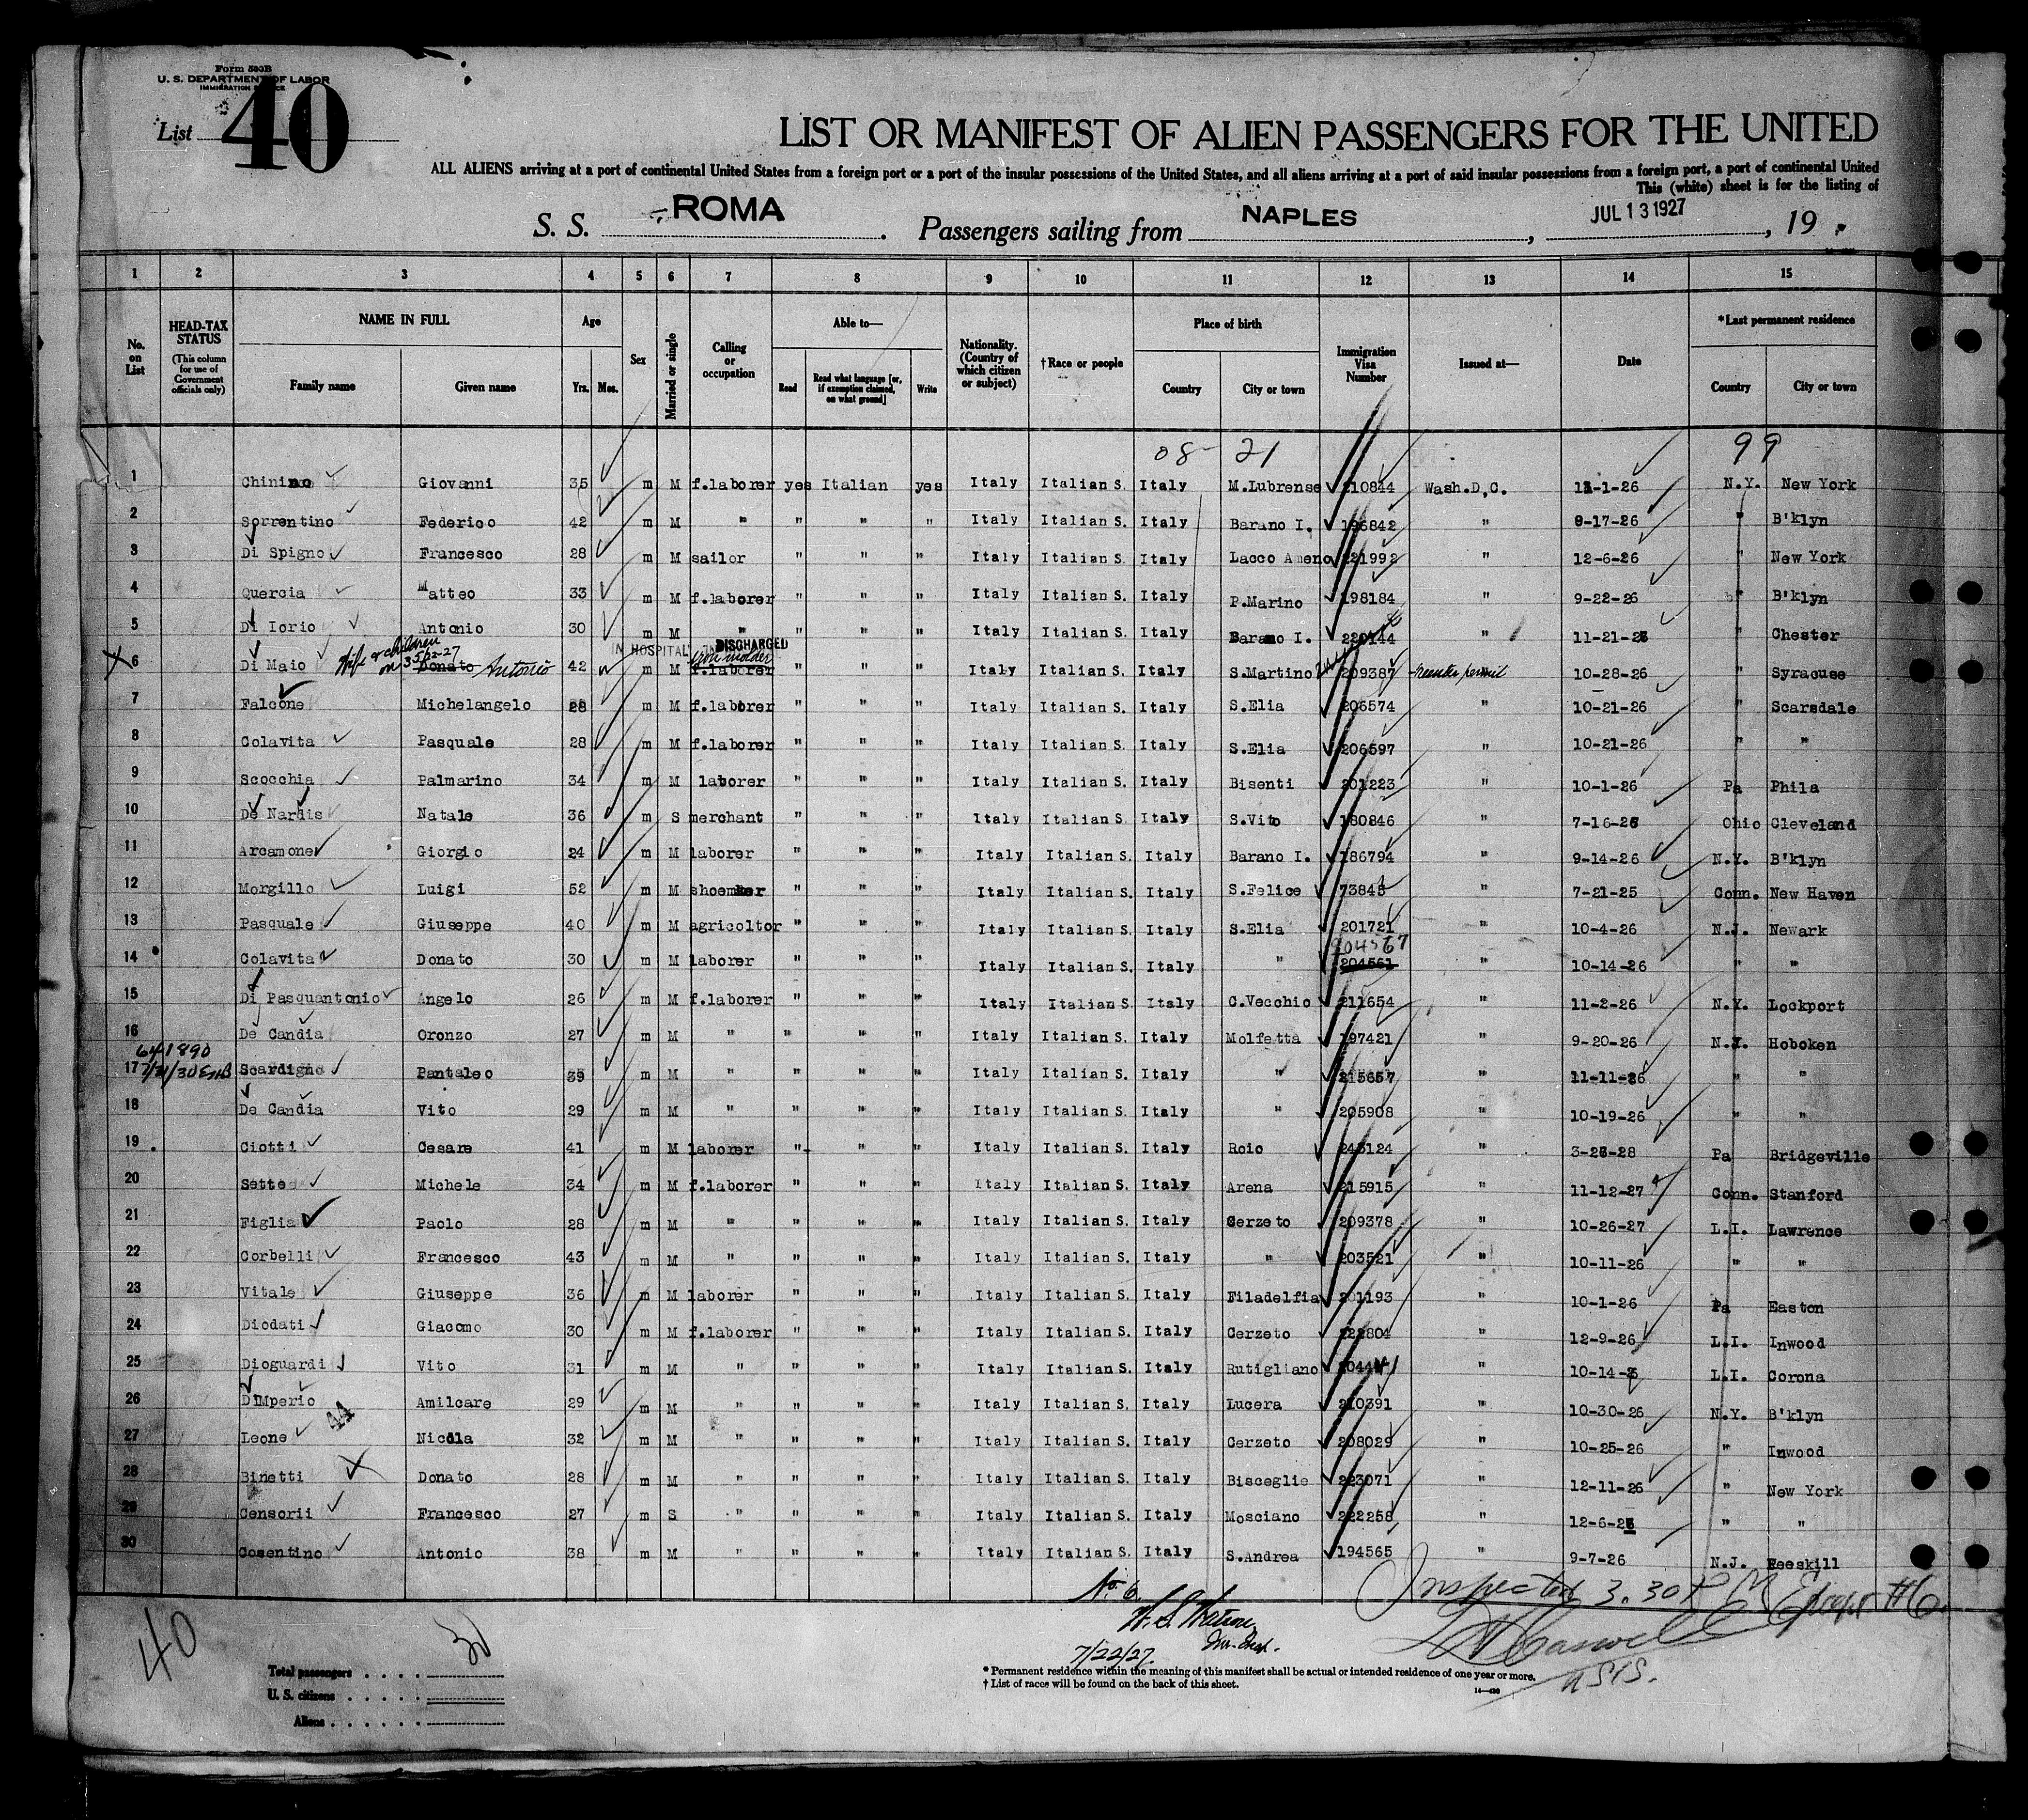 Form 500B
U. S. DEPARTMENT OF LABOR
IMMIGRATION SERVICE
List 40
LIST OR MANIFEST OF ALIEN PASSENGERS FOR THE UNITED
ALL ALIENS arriving at a port of continental United States from a foreign port or a port of the insular possessions of the United States, and all aliens arriving at a port of said insular possessions from a foreign port, a port of continental United
This (white) sheet is for the listing of
S. S. ROMA. Passengers sailing from NAPLES, JUL 13 1927, 19
1 2 3 4 5 6 7 8 9 10 11 12 13 14 15
No. on List
HEAD-TAX STATUS (This column for use of Government officials only)
NAME IN FULL Family name Given name
Age Yrs. Mos.
Sex
Married or single
Calling or occupation
Able to— Read Read what language [or, if exemption claimed, on what ground] Write
Nationality. (Country of which citizen or subject)
†Race or people
Place of birth Country City or town
Immigration Visa Number
Issued at—
Date
*Last permanent residence Country City or town
08- 21 99
1 Chinino Giovanni 35 m M f.laborer yes Italian yes Italy Italian S. Italy M.Lubrense 210844 Wash.D,C. 11-1-26 N.Y. New York
2 Sorrentino Federico 42 m M " " " " Italy Italian S. Italy Barano I. 196842 " 9-17-26 " B'klyn
3 Di Spigno Francesco 28 m M sailor " " " Italy Italian S. Italy Lacco Ameno 221992 " 12-6-26 " New York
4 Quercia Matteo 33 m M f.laborer " " " Italy Italian S. Italy P.Marino 198184 " 9-22-26 " B'klyn
5 Di Iorio Antonio 30 m M " " " " Italy Italian S. Italy Barano I. 220144 " 11-21-26 " Chester
IN HOSPITAL DISCHARGED
Wife & children on 35/22-27
iron molder
6 Di Maio Donato Antonio 42 M f.laborer " " " Italy Italian S. Italy S.Martino 209387 reentry permit " 10-28-26 " Syracuse
7 Falcone Michelangelo 28 m M f.laborer " " " Italy Italian S. Italy S.Elia 206574 " 10-21-26 " Scarsdale
8 Colavita Pasquale 28 m M f.laborer " " " Italy Italian S. Italy S.Elia 206597 " 10-21-26 " "
9 Scocchia Palmarino 34 m M laborer " " " Italy Italian S. Italy Bisenti 201223 " 10-1-26 Pa Phila
10 De Nardis Natale 36 m S merchant " " " Italy Italian S. Italy S.Vito 180846 " 7-16-26 Ohio Cleveland
11 Arcamone Giorgio 24 m M laborer " " " Italy Italian S. Italy Barano I. 186794 " 9-14-26 N.Y. B'klyn
12 Morgillo Luigi 52 m M shoemker " " " Italy Italian S. Italy S.Felice 73845 " 7-21-25 Conn. New Haven
13 Pasquale Giuseppe 40 m M agricoltor " " " Italy Italian S. Italy S.Elia 201721 " 10-4-26 N.J. Newark
204567
14 Colavita Donato 30 m M laborer " " " Italy Italian S. Italy " 204561 " 10-14-26 " "
15 Di Pasquantonio Angelo 26 m M f.laborer " " " Italy Italian S. Italy C.Vecchio 211654 " 11-2-26 N.Y. Lockport
16 De Candia Oronzo 27 m M " " " " Italy Italian S. Italy Molfetta 197421 " 9-20-26 N.J. Hoboken
641890
17 Scardigno Pantaleo 39 m M " " " " Italy Italian S. Italy " 215657 " 11-11-26 " "
18 De Candia Vito 29 m M " " " " Italy Italian S. Italy " 205908 " 10-19-26 " "
19 Ciotti Cesare 41 m M laborer " " " Italy Italian S. Italy Roio 245124 " 3-26-28 Pa Bridgeville
20 Sette Michele 34 m M f.laborer " " " Italy Italian S. Italy Arena 215915 " 11-12-27 Conn. Stanford
21 Figlia Paolo 28 m M " " " " Italy Italian S. Italy Cerzeto 209378 " 10-26-27 L.I. Lawrence
22 Corbelli Francesco 43 m M " " " " Italy Italian S. Italy " 203521 " 10-11-26 " "
23 Vitale Giuseppe 36 m M laborer " " " Italy Italian S. Italy Filadelfia 201193 " 10-1-26 Pa Easton
24 Diodati Giacomo 30 m M f.laborer " " " Italy Italian S. Italy Cerzeto 222804 " 12-9-26 L.I. Inwood
25 Dioguardi Vito 31 m M " " " " Italy Italian S. Italy Rutigliano " 10-14-26 L.I. Corona
26 DIMperio Amilcare 29 m M " " " " Italy Italian S. Italy Lucera 210391 " 10-30-26 N.Y. B'klyn
44
27 Leone Nicola 32 m M " " " " Italy Italian S. Italy Cerzeto 208029 " 10-25-26 " Inwood
28 Binetti Donato 28 m M " " " " Italy Italian S. Italy Bisceglie 223071 " 12-11-26 " New York
29 Censorii Francesco 27 m S " " " " Italy Italian S. Italy Mosciano 222258 " 12-6-26 " "
30 Cosentino Antonio 38 m M " " " " Italy Italian S. Italy S.Andrea 194565 " 9-7-26 N.J. Peeskill
No. 6 Inspected 3.30 PM
7/22/27
40
30
Total passengers
U. S. citizens
Aliens
* Permanent residence within the meaning of this manifest shall be actual or intended residence of one year or more.
† List of races will be found on the back of this sheet.
14—430